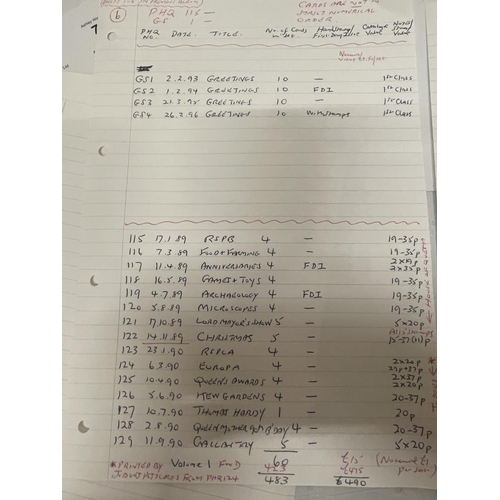 (6) PHQ 115 —
GS 1 —
CARDS ARE NOT IN
NUMERICAL
ORDER.
PHQ NO. DATE. TITLE. No. of Cards Handstamp/ First Day Issue Catalogue Value
GS1 2.2.93 GREETINGS 10 — 1st Class
GS2 1.2.94 GREETINGS 10 FDI 1st Class
GS3 21.3.95 GREETINGS 10 — 1st Class
GS4 26.2.96 GREETINGS 10 With stamps 1st Class
115 17.1.89 RSPB 4 — 19-35p
116 7.3.89 FOOD & FARMING 4 — 19-35p
117 11.4.89 ANNIVERSARIES 4 FDI 2x19p 2x35p
118 16.5.89 GAMES & TOYS 4 — 19-35p
119 4.7.89 ARCHAEOLOGY 4 FDI 19-35p
120 5.8.89 MICROSCOPES 4 — 19-35p
121 17.10.89 LORD MAYOR'S SHOW 5 — 5x20p
122 14.11.89 CHRISTMAS 5 — 15-37(11)p
123 23.1.90 RSPCA 4 —
124 6.3.90 EUROPA 4 — 2x20p
125 10.4.90 QUEEN'S AWARDS 4 — 2x37p 2x20p
126 5.6.90 KEW GARDENS 4 — 20-37p
127 10.7.90 THOMAS HARDY 1 — 20p
128 2.8.90 QUEEN MOTHER 90th B'DAY 4 — 20-37p
129 11.9.90 GALLANTRY 5 — 5x20p
* PRINTED BY Volume 1 60 £15 (Nominal £1
423 £475
FROM PHQ 124 483 £490